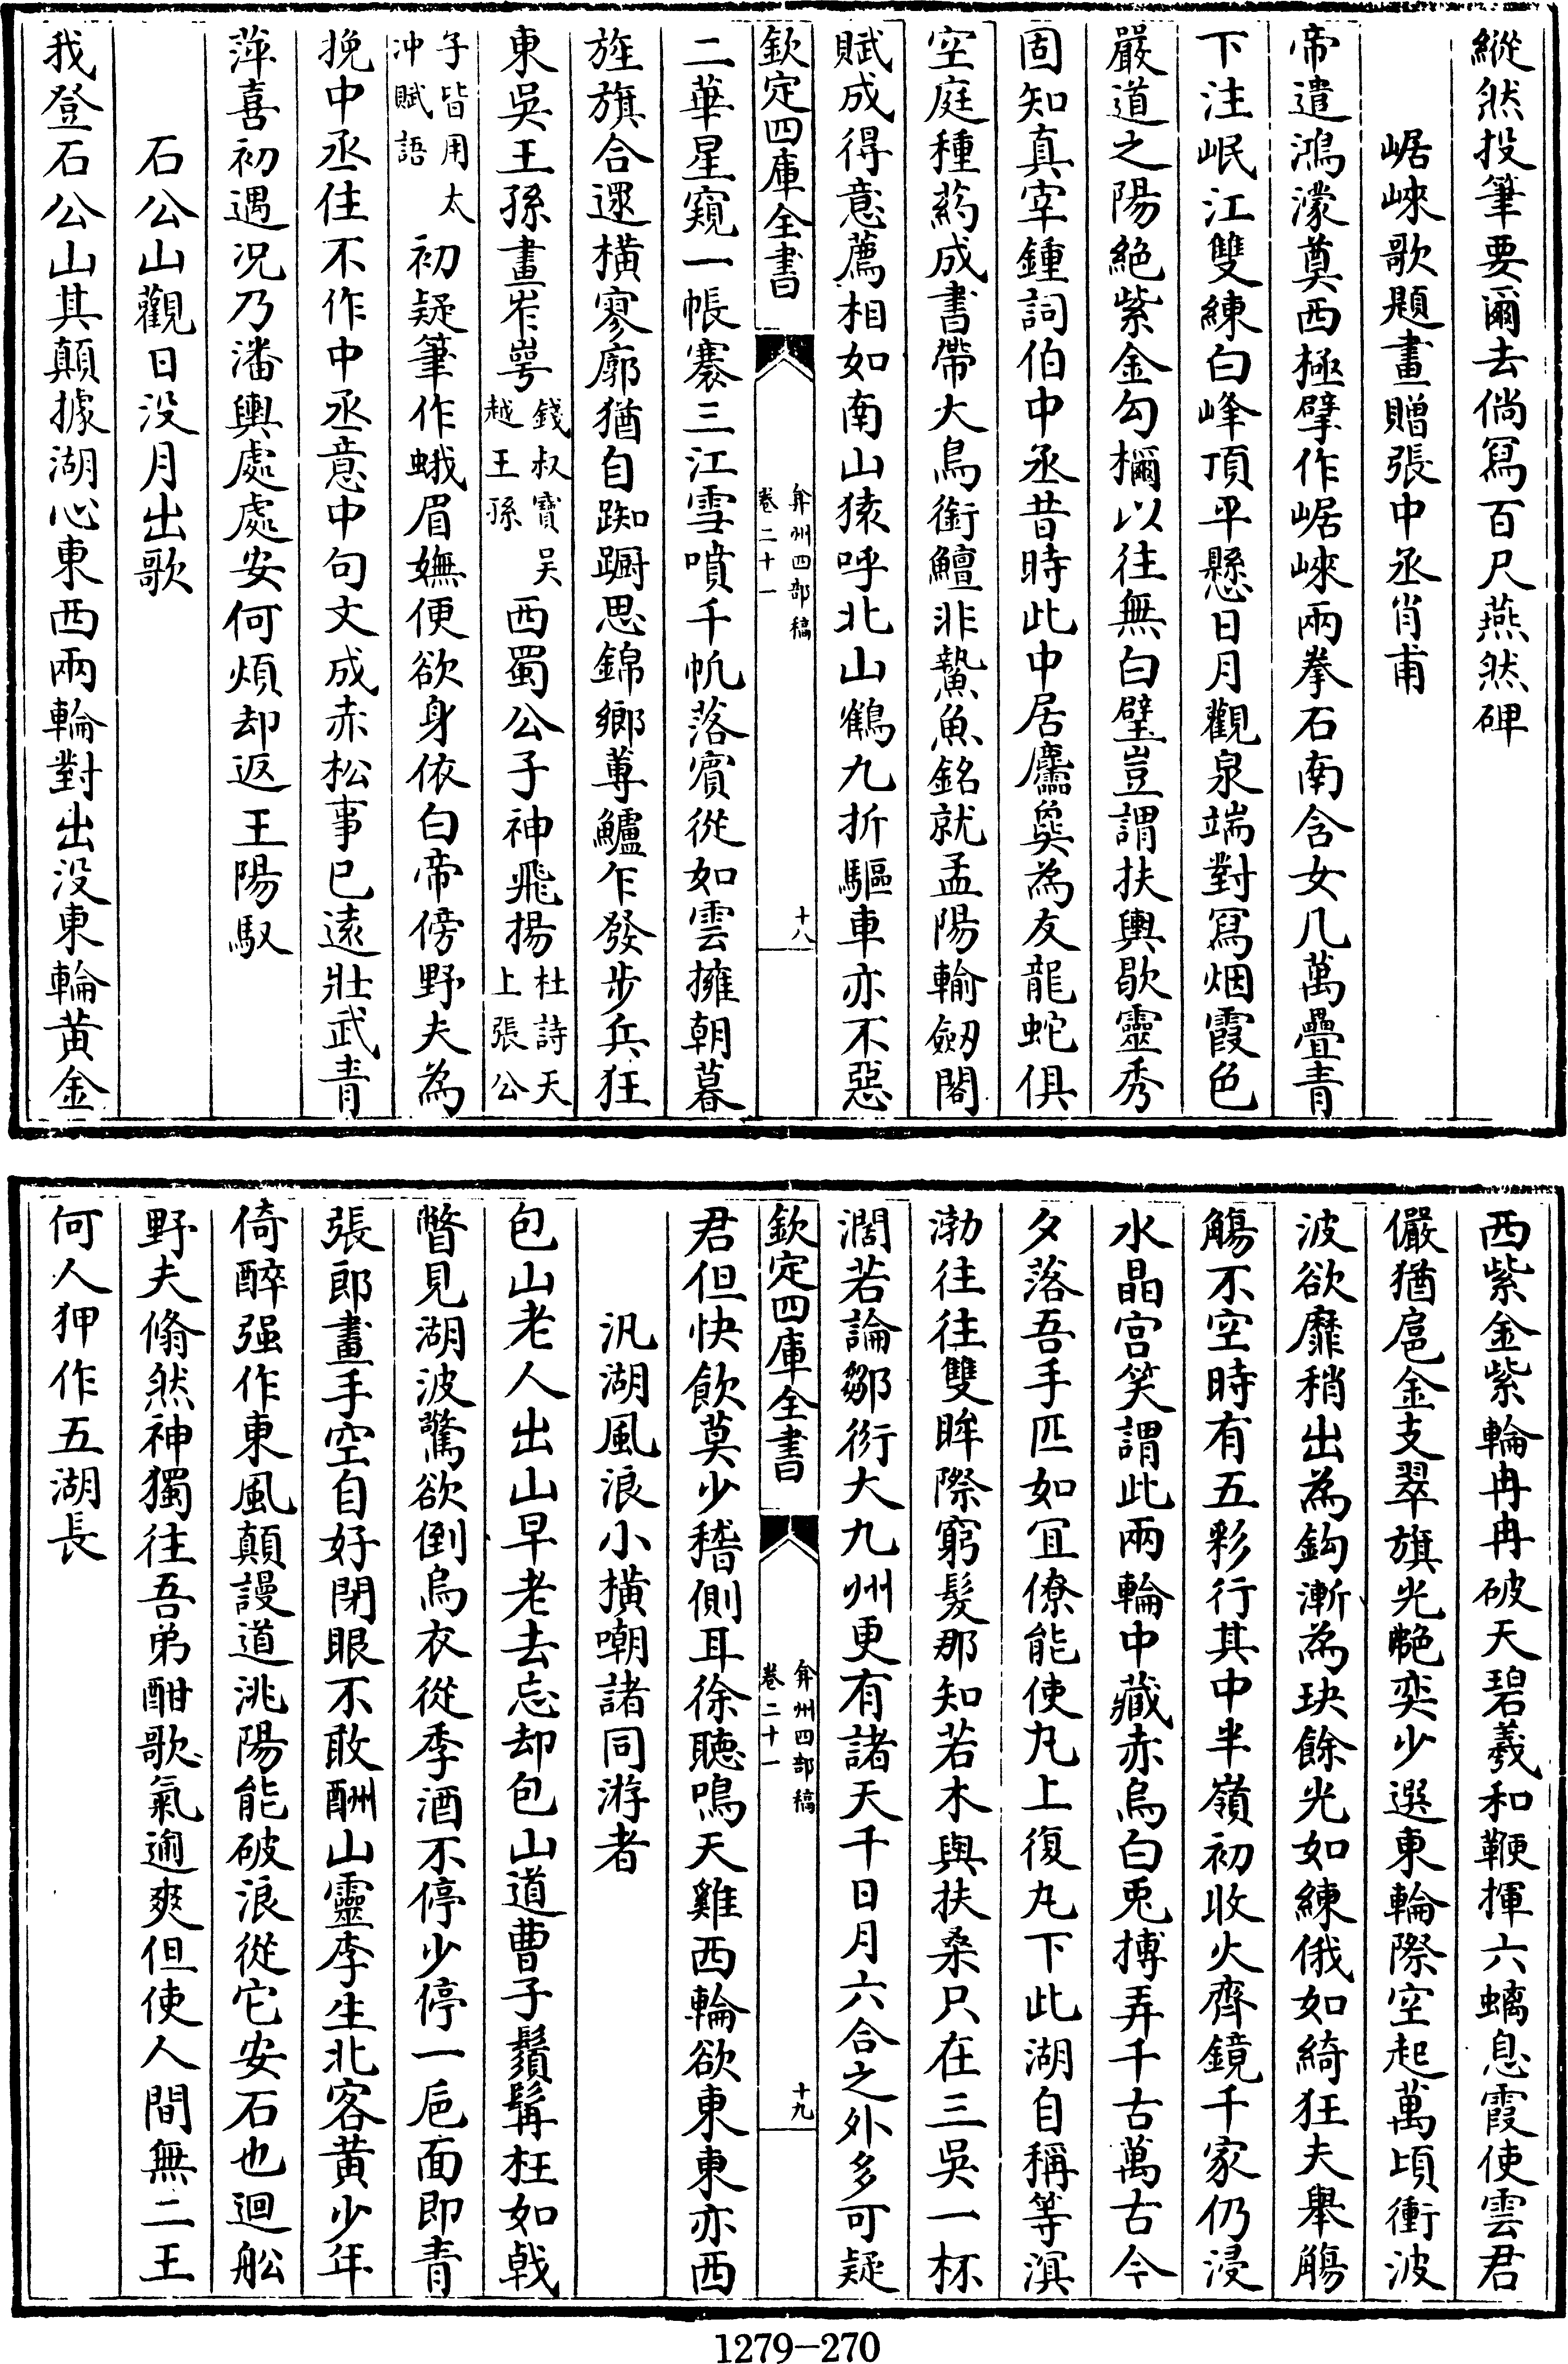 縱然投筆要爾去倘寫百尺燕然碑
崌崍歌題畫贈張中丞肖甫
帝遣鴻濛奠西極擘作崌崍兩拳石南含女几萬疊青
下注岷江雙練白峰頂平懸日月觀泉端對寫烟霞色
嚴道之陽絶紫金勾檷以往無白璧豈謂扶輿歇靈秀
固知真宰鍾詞伯中丞昔時此中居麢㚟為友龍蛇俱
空庭種葯成書帶大鳥銜鱣非鷙魚銘就孟陽輸劒閣
賦成得意薦相如南山猿呼北山鶴九折驅車亦不惡
欽定四庫全書
弇州四部稿
卷二十一
十八
二華星窺一帳褰三江雪噴千帆落賓從如雲擁朝暮
旌旗合遝橫寥廓猶自踟躕思錦鄉蓴鱸乍發步兵狂
東吳王孫畫岝崿錢叔寶吴越王孫西蜀公子神飛揚杜詩天上張公
子皆用太冲賦語初疑筆作蛾眉嫵便欲身依白帝傍野夫為
挽中丞住不作中丞意中句文成赤松事已遠壯武青
萍喜初遇况乃潘輿處處安何煩却返王陽馭
石公山觀日没月出歌
我登石公山其顛據湖心東西兩輪對出没東輪黄金
西紫金紫輪冉冉破天碧羲和鞭揮六螭息霞使雲君
儼猶扈金支翠旗光艴奕少選東輪際空起萬頃衝波
波欲靡稍出為鈎漸為玦餘光如練俄如綺狂夫舉觴
觴不空時有五彩行其中半嶺初收火齊鏡千家仍浸
水晶宫笑謂此兩輪中藏赤烏白兎搏弄千古萬古今
夕落吾手匹如宜僚能使丸上復丸下此湖自稱等溟
渤往往雙眸際窮髪那知若木與扶桑只在三吳一杯
濶若論鄒衍大九州更有諸天千日月六合之外多可疑
欽定四庫全書
弇州四部稿
卷二十一
十九
君但快飲莫少稽側耳徐聽鳴天雞西輪欲東東亦西
汎湖風浪小横嘲諸同游者
包山老人出山早老去忘却包山道曹子鬚髯枉如㦸
瞥見湖波驚欲倒烏衣從季酒不停少停一巵面即青
張郎畫手空自好閉眼不敢酬山靈李生北客黄少年
倚醉强作東風顛謾道洮陽能破浪從它安石也迴舩
野夫翛然神獨往吾弟酣歌氣遒爽但使人間無二王
何人狎作五湖長
1279-270